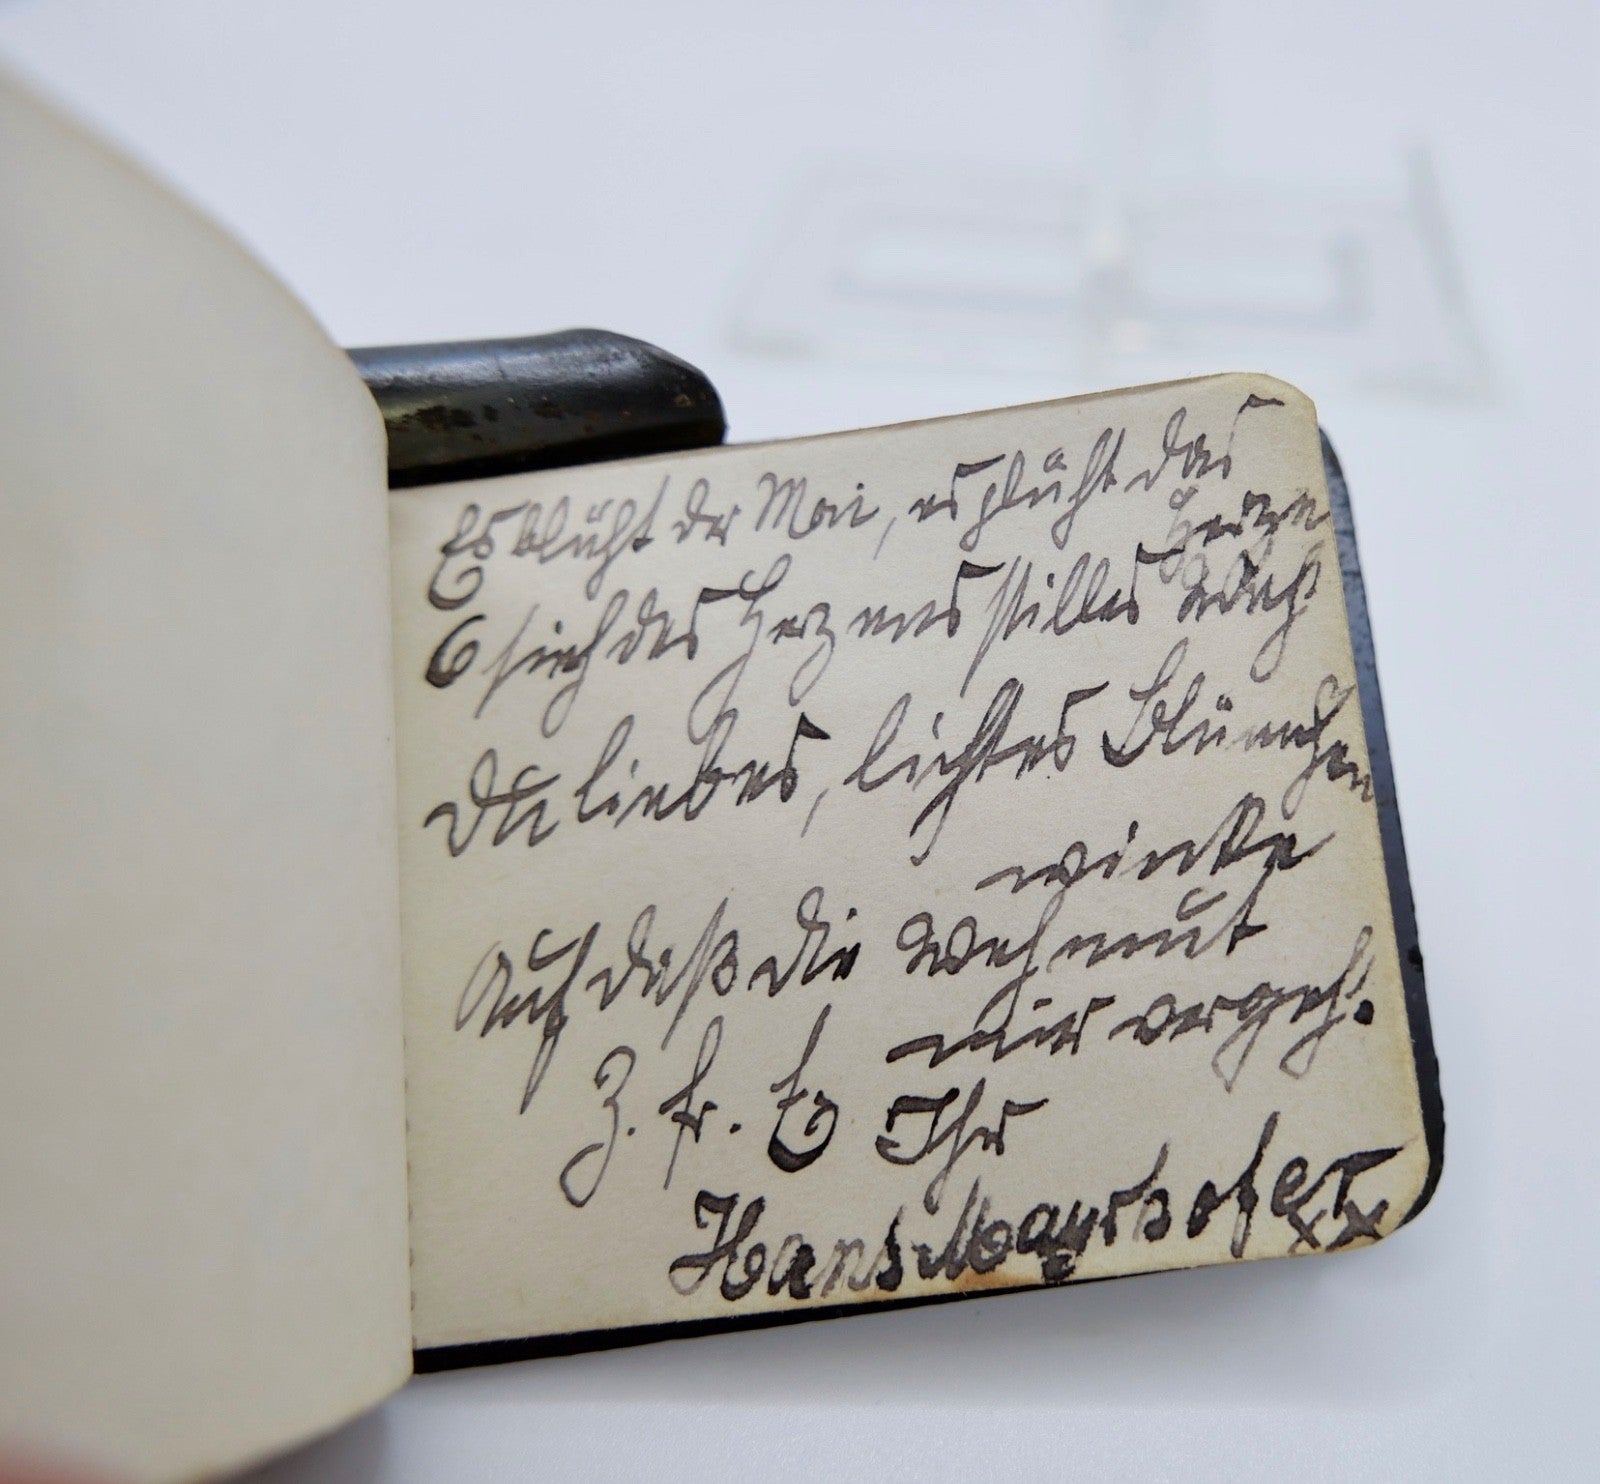 Es blüht der Mai, es glüht das
Herze
O sieh des Herzens stilles Weh!
Du liebes, lichtes Blümchen
winke
Auf daß die Wehmut
mir vergeh!
Z. fr. E Ihr
Hans Mayrhofer